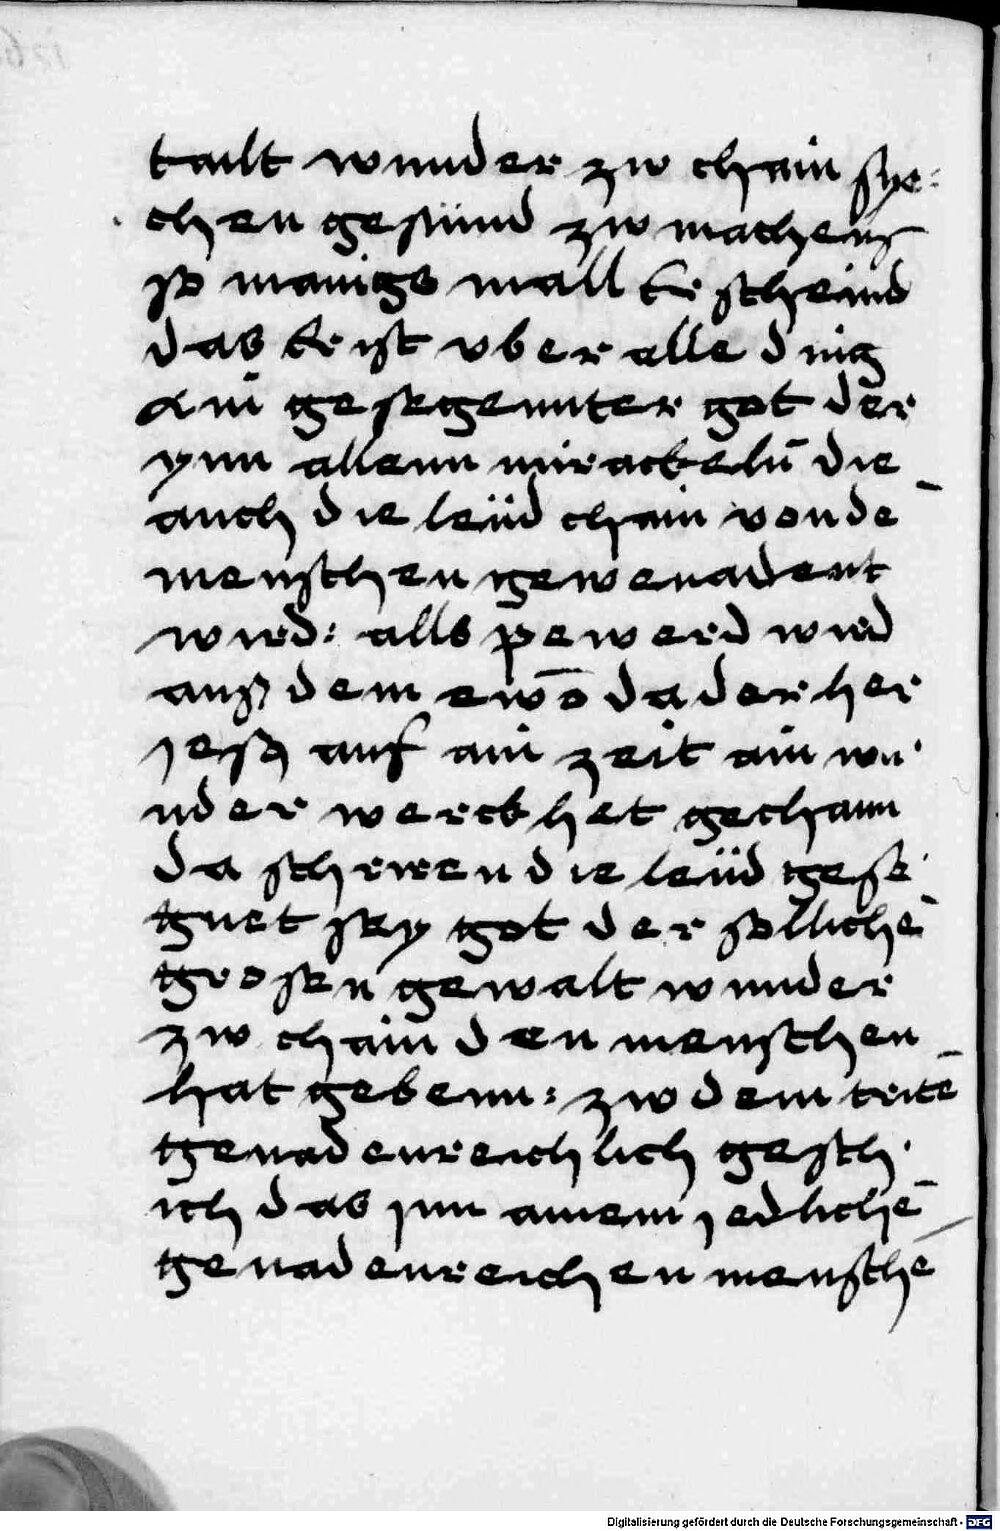 tailt wunder zw chain sye-
chen gesünd zw machens
so manigs mall Er scheind
das Er ist vber alle ding
Ain gesegennter got der
ynn allenn mirackeln̄ die
auch die leüd chain von dē
menschen gewenadent
wird: alls pewerd wird
auß dem ewō da der her
jesß auf ain zeit ain wu-
nder werck het gechann
da schrwen die leüd gese-
gnet sey got der sollichē
grosen gewalt wunder
zw chain den menschen
hat gebenn: zw dem tritē
genadenreichlich gesch-
ich das jnn ainem jedlichē
genadenreichen menschē
Digitalisierung gefördert durch die Deutsche Forschungsgemeinschaft - DFG